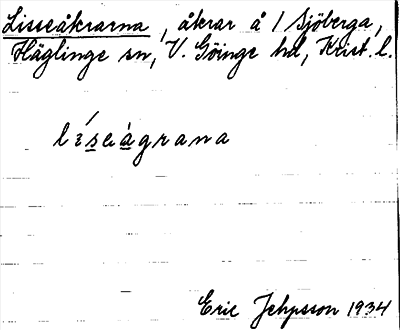 Lisseåkrarna, åkrar å 1 Sjöberga,
Häglinge sn, V. Göinge hd, Krist. l.
Eric Jehpsson 1934